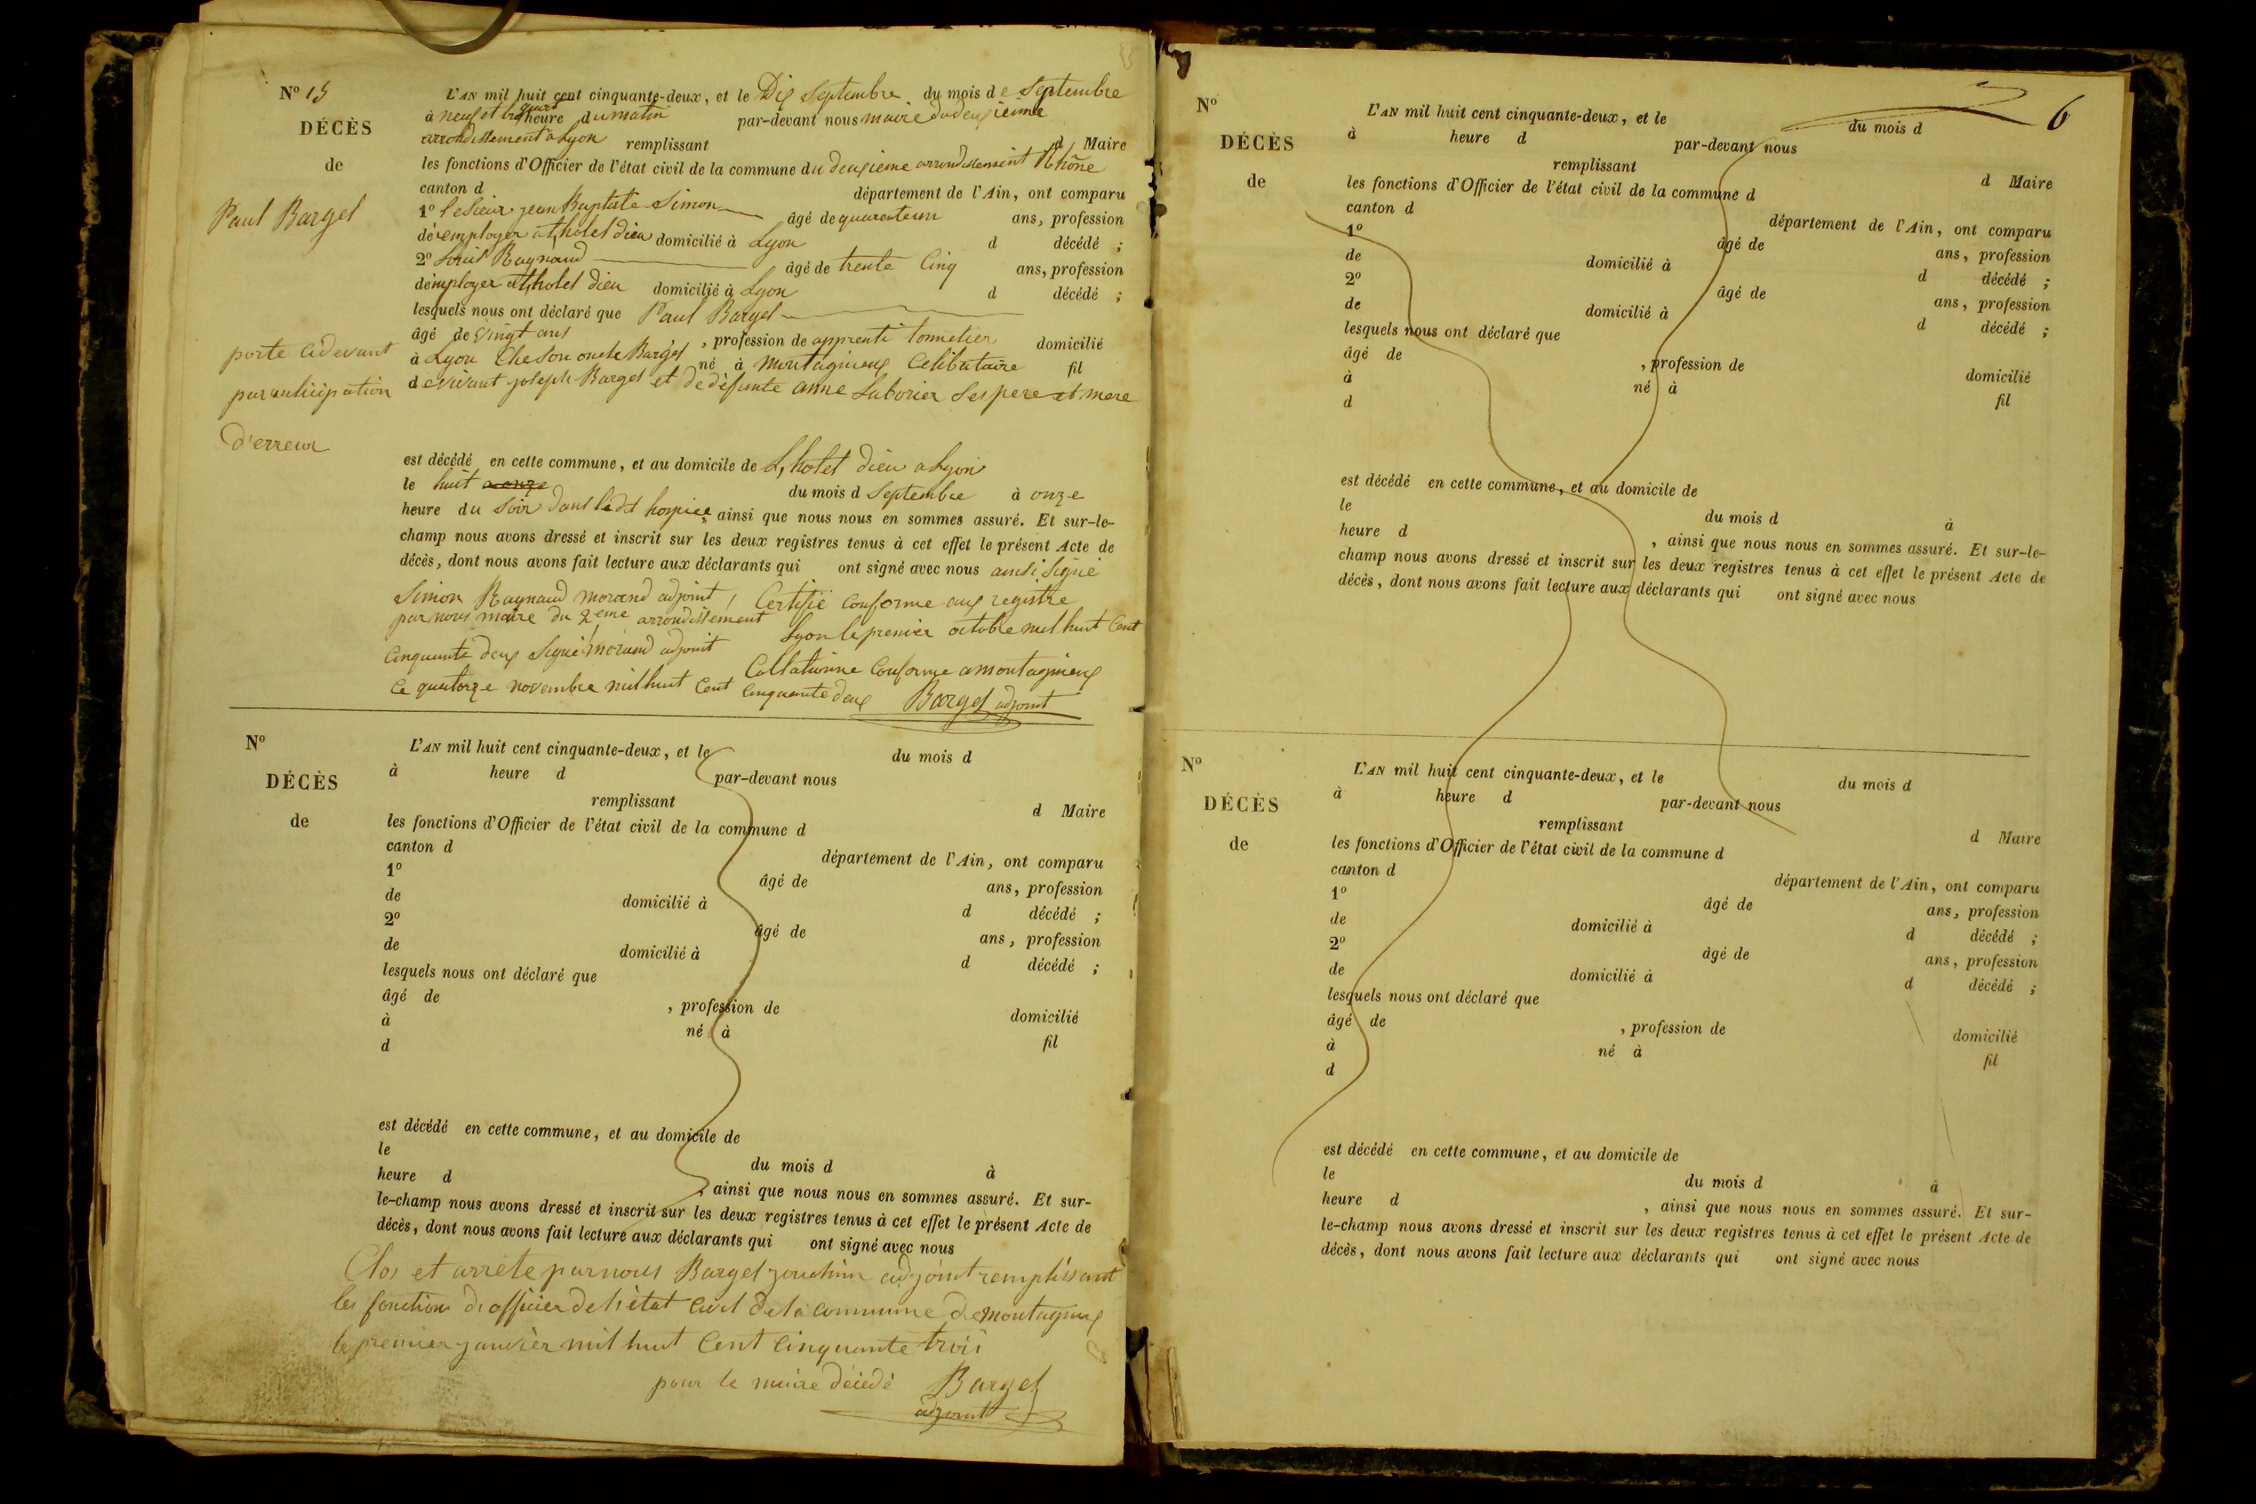 Nº 15
DÉCÈS
de
Paul Barget
porte cidevant
par anticipation
d'erreur
L'AN mil huit cent cinquante-deux, et le Dix Septembre du mois de Septembre
à neuf et trois quart heure du matin par-devant nous maire du deuxieime
arrondissement a Lyon remplissant d Maire
les fonctions d'Officier de l'état civil de la commune du deuxieme arrondissement Rhône
canton d département de l'Ain, ont comparu
1º le sieur jean Baptiste Simon âgé de quarante un ans, profession
de employer a l,hotel dieu domicilié à Lyon d décédé ;
2º Louis Raynaud âgé de trente Cinq ans, profession
demployer a l,hotel dieu domicilié à Lyon d décédé ;
lesquels nous ont déclaré que Paul Barget
âgé de vingt ans , profession de apprenti tonnelier domicilié
à Lyon Che Son oncle Barget né à Montagnieux Celibataire fil
de vivant joseph Barget et de défunte anne Laborier Ses pere et mere
est décédé en cette commune, et au domicile de L,hotel dieu a Lyon
le huit a onze du mois d Septembre à onze
heure du Soir dans ledt hospice, ainsi que nous nous en sommes assuré. Et sur-le-
champ nous avons dressé et inscrit sur les deux registres tenus à cet effet le présent Acte de
décès, dont nous avons fait lecture aux déclarants qui ont signé avec nous ainsi Signé
Simon Raynaud morand adjoint, Certifié Conforme aux registre
par nous maire du 2eme arrondissement Lyon le premier octobre mil huit Cent
Cinquante deux Signé morand adjoint Collationne Conforme a montagnieux
Ce quatorze novembre mil huit Cent Cinquante deux Barget adjoint
Nº
DÉCÈS
de
L'AN mil huit cent cinquante-deux, et le du mois d
à heure d par-devant nous
remplissant d Maire
les fonctions d'Officier de l'état civil de la commune d
canton d département de l'Ain, ont comparu
1º âgé de ans, profession
de domicilié à d décédé ;
2º âgé de ans, profession
de domicilié à d décédé ;
lesquels nous ont déclaré que
âgé de , profession de domicilié
à né à fil
d
est décédé en cette commune, et au domicile de
le du mois d à
heure d , ainsi que nous nous en sommes assuré. Et sur-
le-champ nous avons dressé et inscrit sur les deux registres tenus à cet effet le présent Acte de
décès, dont nous avons fait lecture aux déclarants qui ont signé avec nous
Clos et arrete par nous Barget joachim adjoint remplissant
les fonctions d'officier de l'état Civil de la Commune de Montagnieux
le premier janvier mil huit Cent Cinquante trois
pour le maire décédé Barget
adjoint
6
Nº
DÉCÈS
de
L'AN mil huit cent cinquante-deux, et le du mois d
à heure d par-devant nous
remplissant d Maire
les fonctions d'Officier de l'état civil de la commune d
canton d département de l'Ain, ont comparu
1º âgé de ans, profession
de domicilié à d décédé ;
2º âgé de ans, profession
de domicilié à d décédé ;
lesquels nous ont déclaré que
âgé de , profession de domicilié
à né à fil
d
est décédé en cette commune, et au domicile de
le du mois d à
heure d , ainsi que nous nous en sommes assuré. Et sur-le-
champ nous avons dressé et inscrit sur les deux registres tenus à cet effet le présent Acte de
décès, dont nous avons fait lecture aux déclarants qui ont signé avec nous
Nº
DÉCÈS
de
L'AN mil huit cent cinquante-deux, et le du mois d
à heure d par-devant nous
remplissant d Maire
les fonctions d'Officier de l'état civil de la commune d
canton d département de l'Ain, ont comparu
1º âgé de ans, profession
de domicilié à d décédé ;
2º âgé de ans, profession
de domicilié à d décédé ;
lesquels nous ont déclaré que
âgé de , profession de domicilié
à né à fil
d
est décédé en cette commune, et au domicile de
le du mois d à
heure d , ainsi que nous nous en sommes assuré. Et sur-
le-champ nous avons dressé et inscrit sur les deux registres tenus à cet effet le présent Acte de
décès, dont nous avons fait lecture aux déclarants qui ont signé avec nous